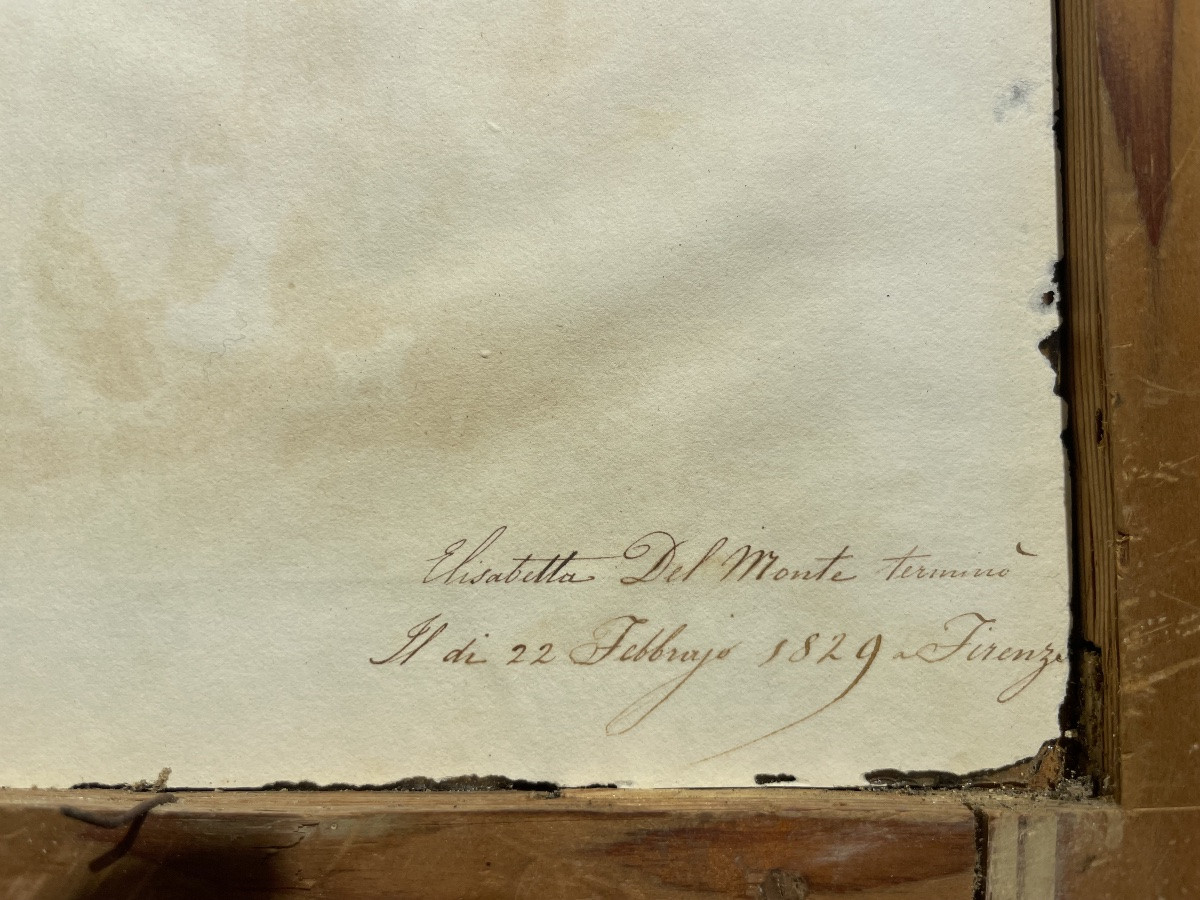 Elisabetta Del Monte terminò
Il di 22 Febbrajo 1829 a Firenze